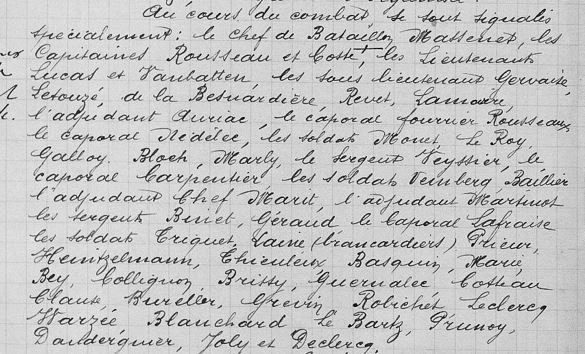 Au cours du combat se sont signalés
spécialement: le chef de Bataillon Massenet, les
Capitaines Rousseau et Coste, les Lieutenants
Lucas et Vanbatten, les sous lieutenant Gervaise,
Letouzé, de la Besnardière, Revet, Lamoure,
l'adjudant Auriac, le caporal fournier Rousseaux
le caporal Nédélec, les soldats Monet, Le Roy,
Galloy, Bloch, Marly, le sergent Veyssier, le
caporal Carpentier, les soldats Veinberg, Baillier
l'adjudant Chef Marit, l'adjudant Martinot
les sergents Binet, Géraud, le Caporal Lafraise
les soldats Triquet, Laine (brancardiers) Prieur,
Heintzelmann, Thieuleux, Basquin, Marie,
Bey, Collignon Brissy, Guernalec Cotteau
Clause, Burelier, Grévin Robichét Leclercq
Warzée Blanchard Le Bartz, Prunoy,
Dauderguier, Joly et Declercq,